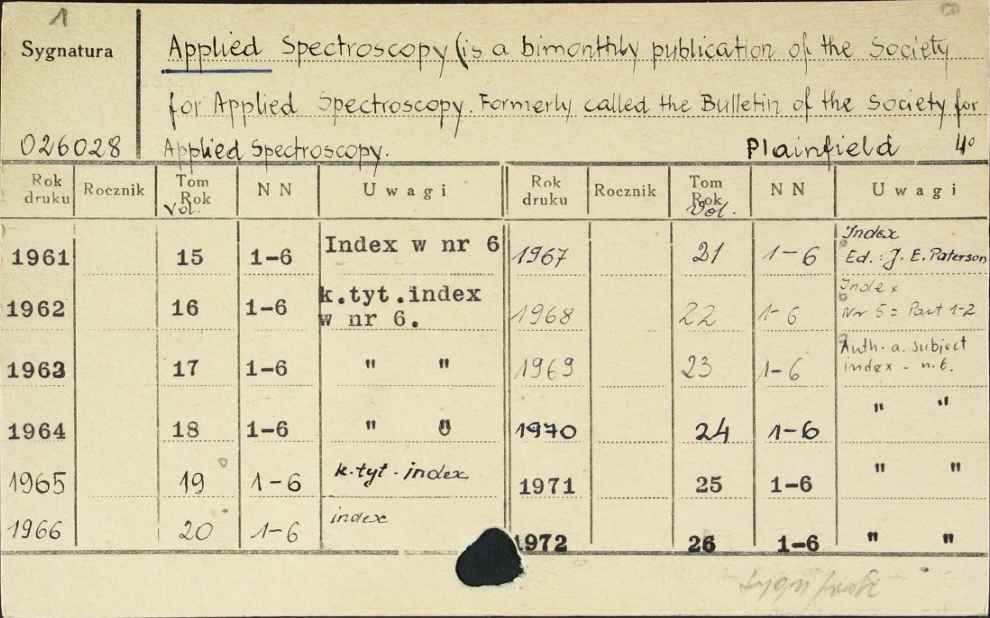 1
Sygnatura
026028
Applied Spectroscopy (is a bimonthly publication of the Society
for Applied Spectroscopy. Formerly called the Bulletin of the Society for
Applied Spectroscopy.
Plainfield 4°
Rok druku Rocznik Tom Rok Vol. NN Uwagi Rok druku Rocznik Tom Rok Vol. NN Uwagi
1961 15 1-6 Index w nr 6
1962 16 1-6 k.tyt.index w nr 6.
1963 17 1-6 " "
1964 18 1-6 " "
1965 19 1-6 k.tyt. index
1966 20 1-6 index
1967 21 1-6 Index Ed.: J. E. Paterson
1968 22 1-6 Index Nr 5 = Part 1-2
1969 23 1-6 Auth. a. subject index - n.6.
1970 24 1-6 " "
1971 25 1-6 " "
1972 26 1-6 " "